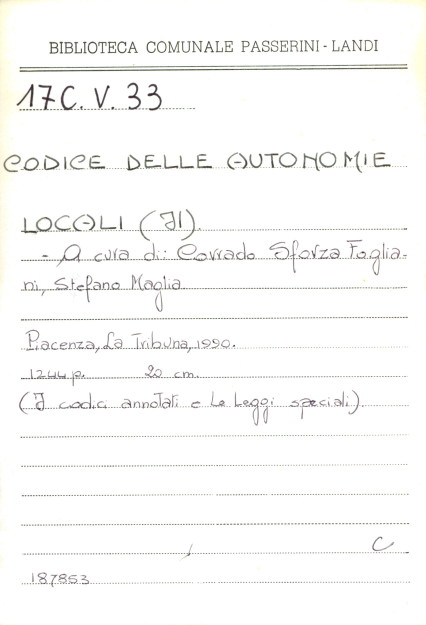 BIBLIOTECA COMUNALE PASSERINI-LANDI
17C. V. 33
CODICE DELLE AUTONOMIE
LOCALI (Il).
- A cura di: Corrado Sforza Foglia-
ni, Stefano Maglia
Piacenza, La Tribuna, 1990.
1244 p. 20 cm.
(I codici annotati e Le Leggi speciali).
C
187853